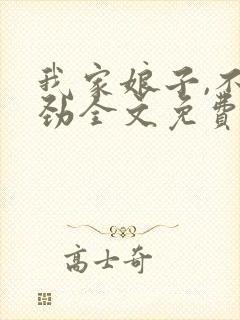 我家娘子,不
劲全文免费
高士奇